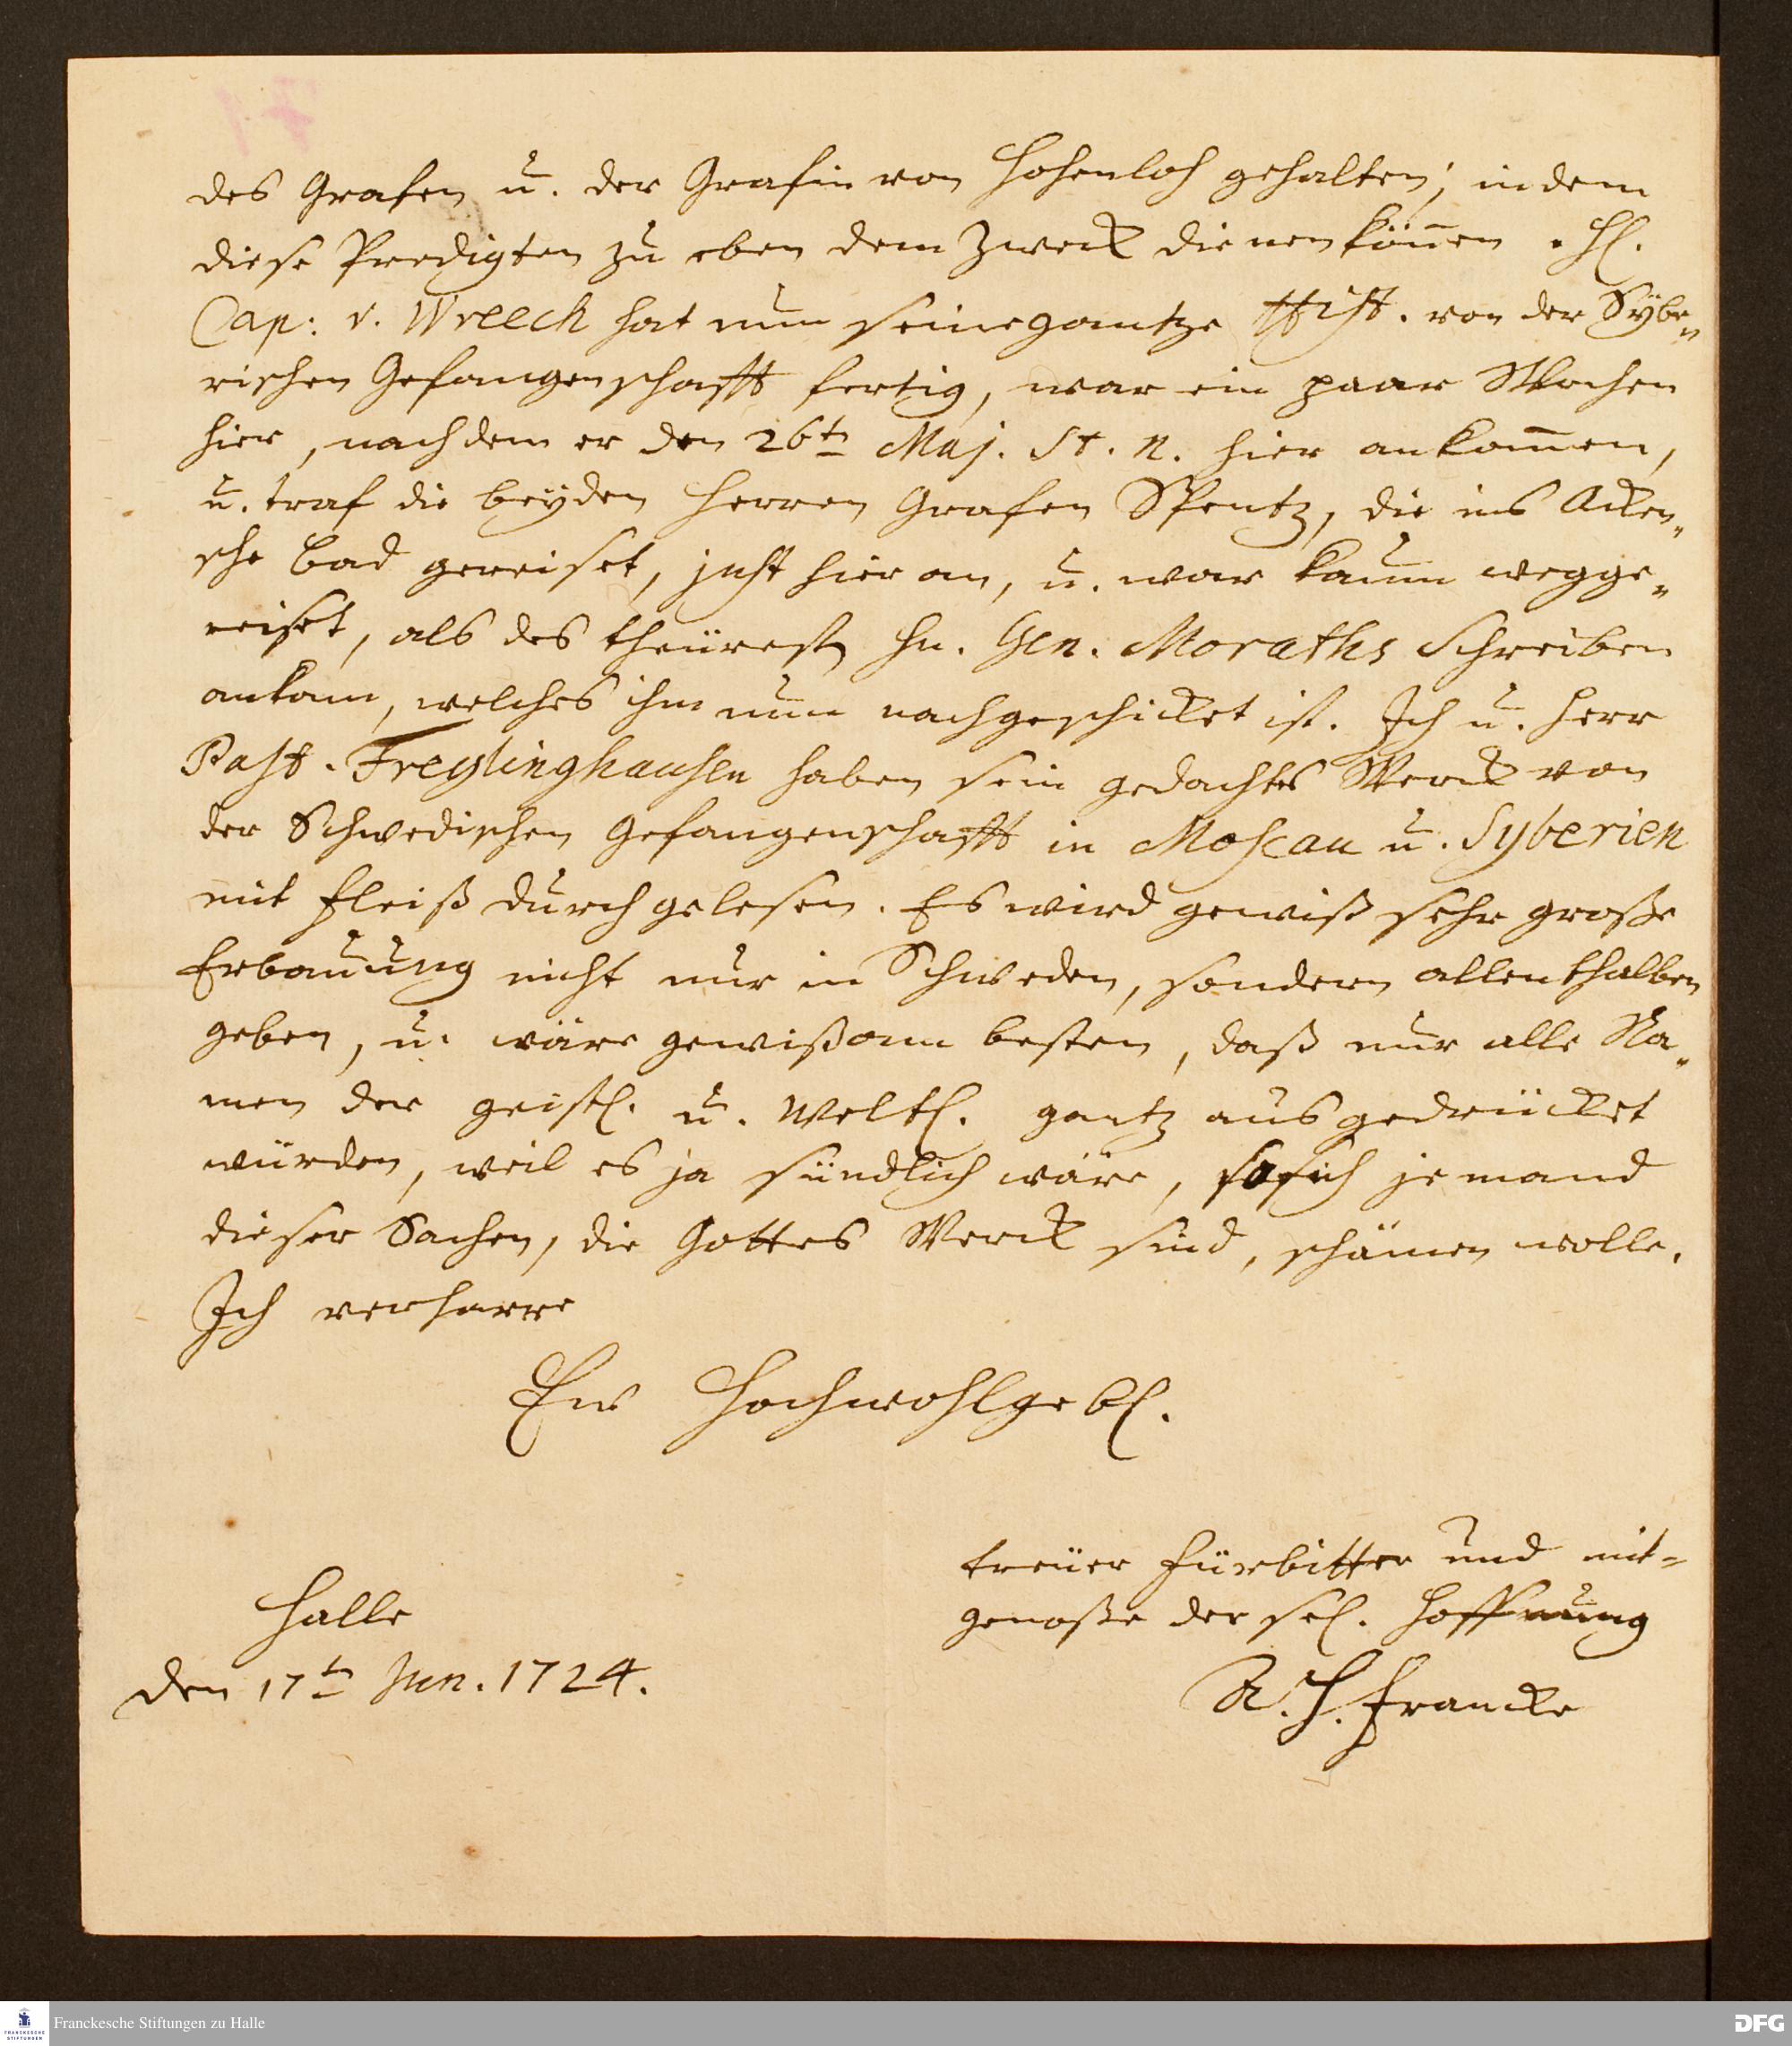 des Grafen u. der Gräfin von Hohenloh gehalten; indem
diese Predigten zu eben dem Zweck dienen können. H.
Cap: v. Wreech hat nun seine gantze Hist. von der Sÿbe„
rischen Gefangenschafft fertig, war ein paar Wochen
hier, nachdem er den 26ten Maj. St. n. hier ankom̄en,
u. traf die beÿden Herren Grafen, die ins
sche Bad gereiset, just hier an, u. war kaum wegge„
reiset, als des theüresten Hn. Gen. Moraths Schreiben
ankam, welches ihm nun nachgeschicket ist. Ich u. Herr
Past. Freylinghausen haben sein gedachtes Werck von
der Schwedischen Gefangenschafft in Moscau u. Syberien
mit Fleiß durchgelesen. Es wird gewiß sehr große
Erbauung nicht nur in Schweden, sondern allenthalben
geben, u. wäre gewiß am besten, daß nur alle Na„
men der geistl. u. Weltl. gantz ausgedrücket
würden, weil es ja sündlich wäre, so sich jemand
dieser Sachen, die Gottes Werck sind, schämen wolle.
Ich verharre
Ew Hochwohlgebl.
treüer Fürbitter und mit-
genoße der sel. Hoffnung
Halle
den 17ten Jun. 1724.
A. H. Francke
FRANCKESCHE
STIFTUNGEN
Franckesche Stiftungen zu Halle
DFG